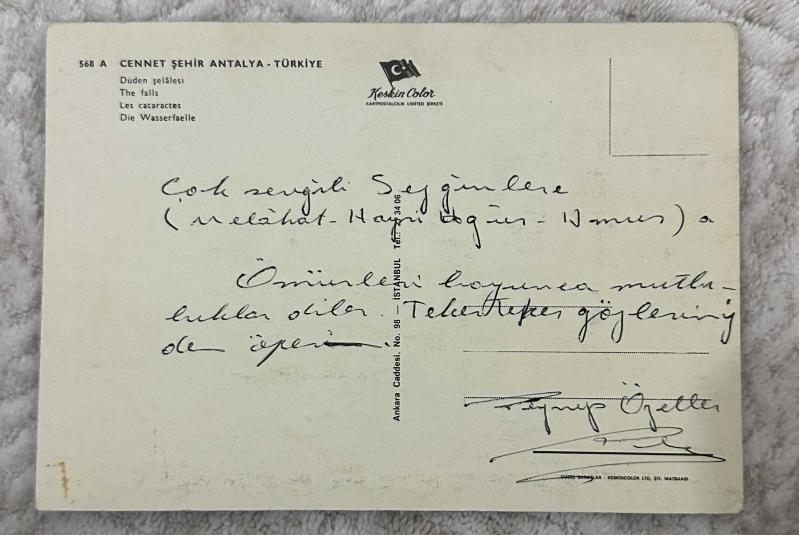 568 A CENNET ŞEHİR ANTALYA - TÜRKİYE
Düden şelâlesi
The falls
Les cataractes
Die Wasserfaelle
Keskin Color
KARTPOSTALCILIK LIMITED ŞİRKETİ
Çok sevgili Seyğinlere
(Melâhat - Hayri - - ) a
Ömürleri boyunca mutlu-
luklar diler. Teker teker gözleriniz
den öperim.
Zeynep Özeller
Ankara Caddesi. No. 98 — İSTANBUL Tel.: 34 06
GÜZEL SANATLAR - KESKİNCOLOR LTD. ŞTİ. MATBAASI